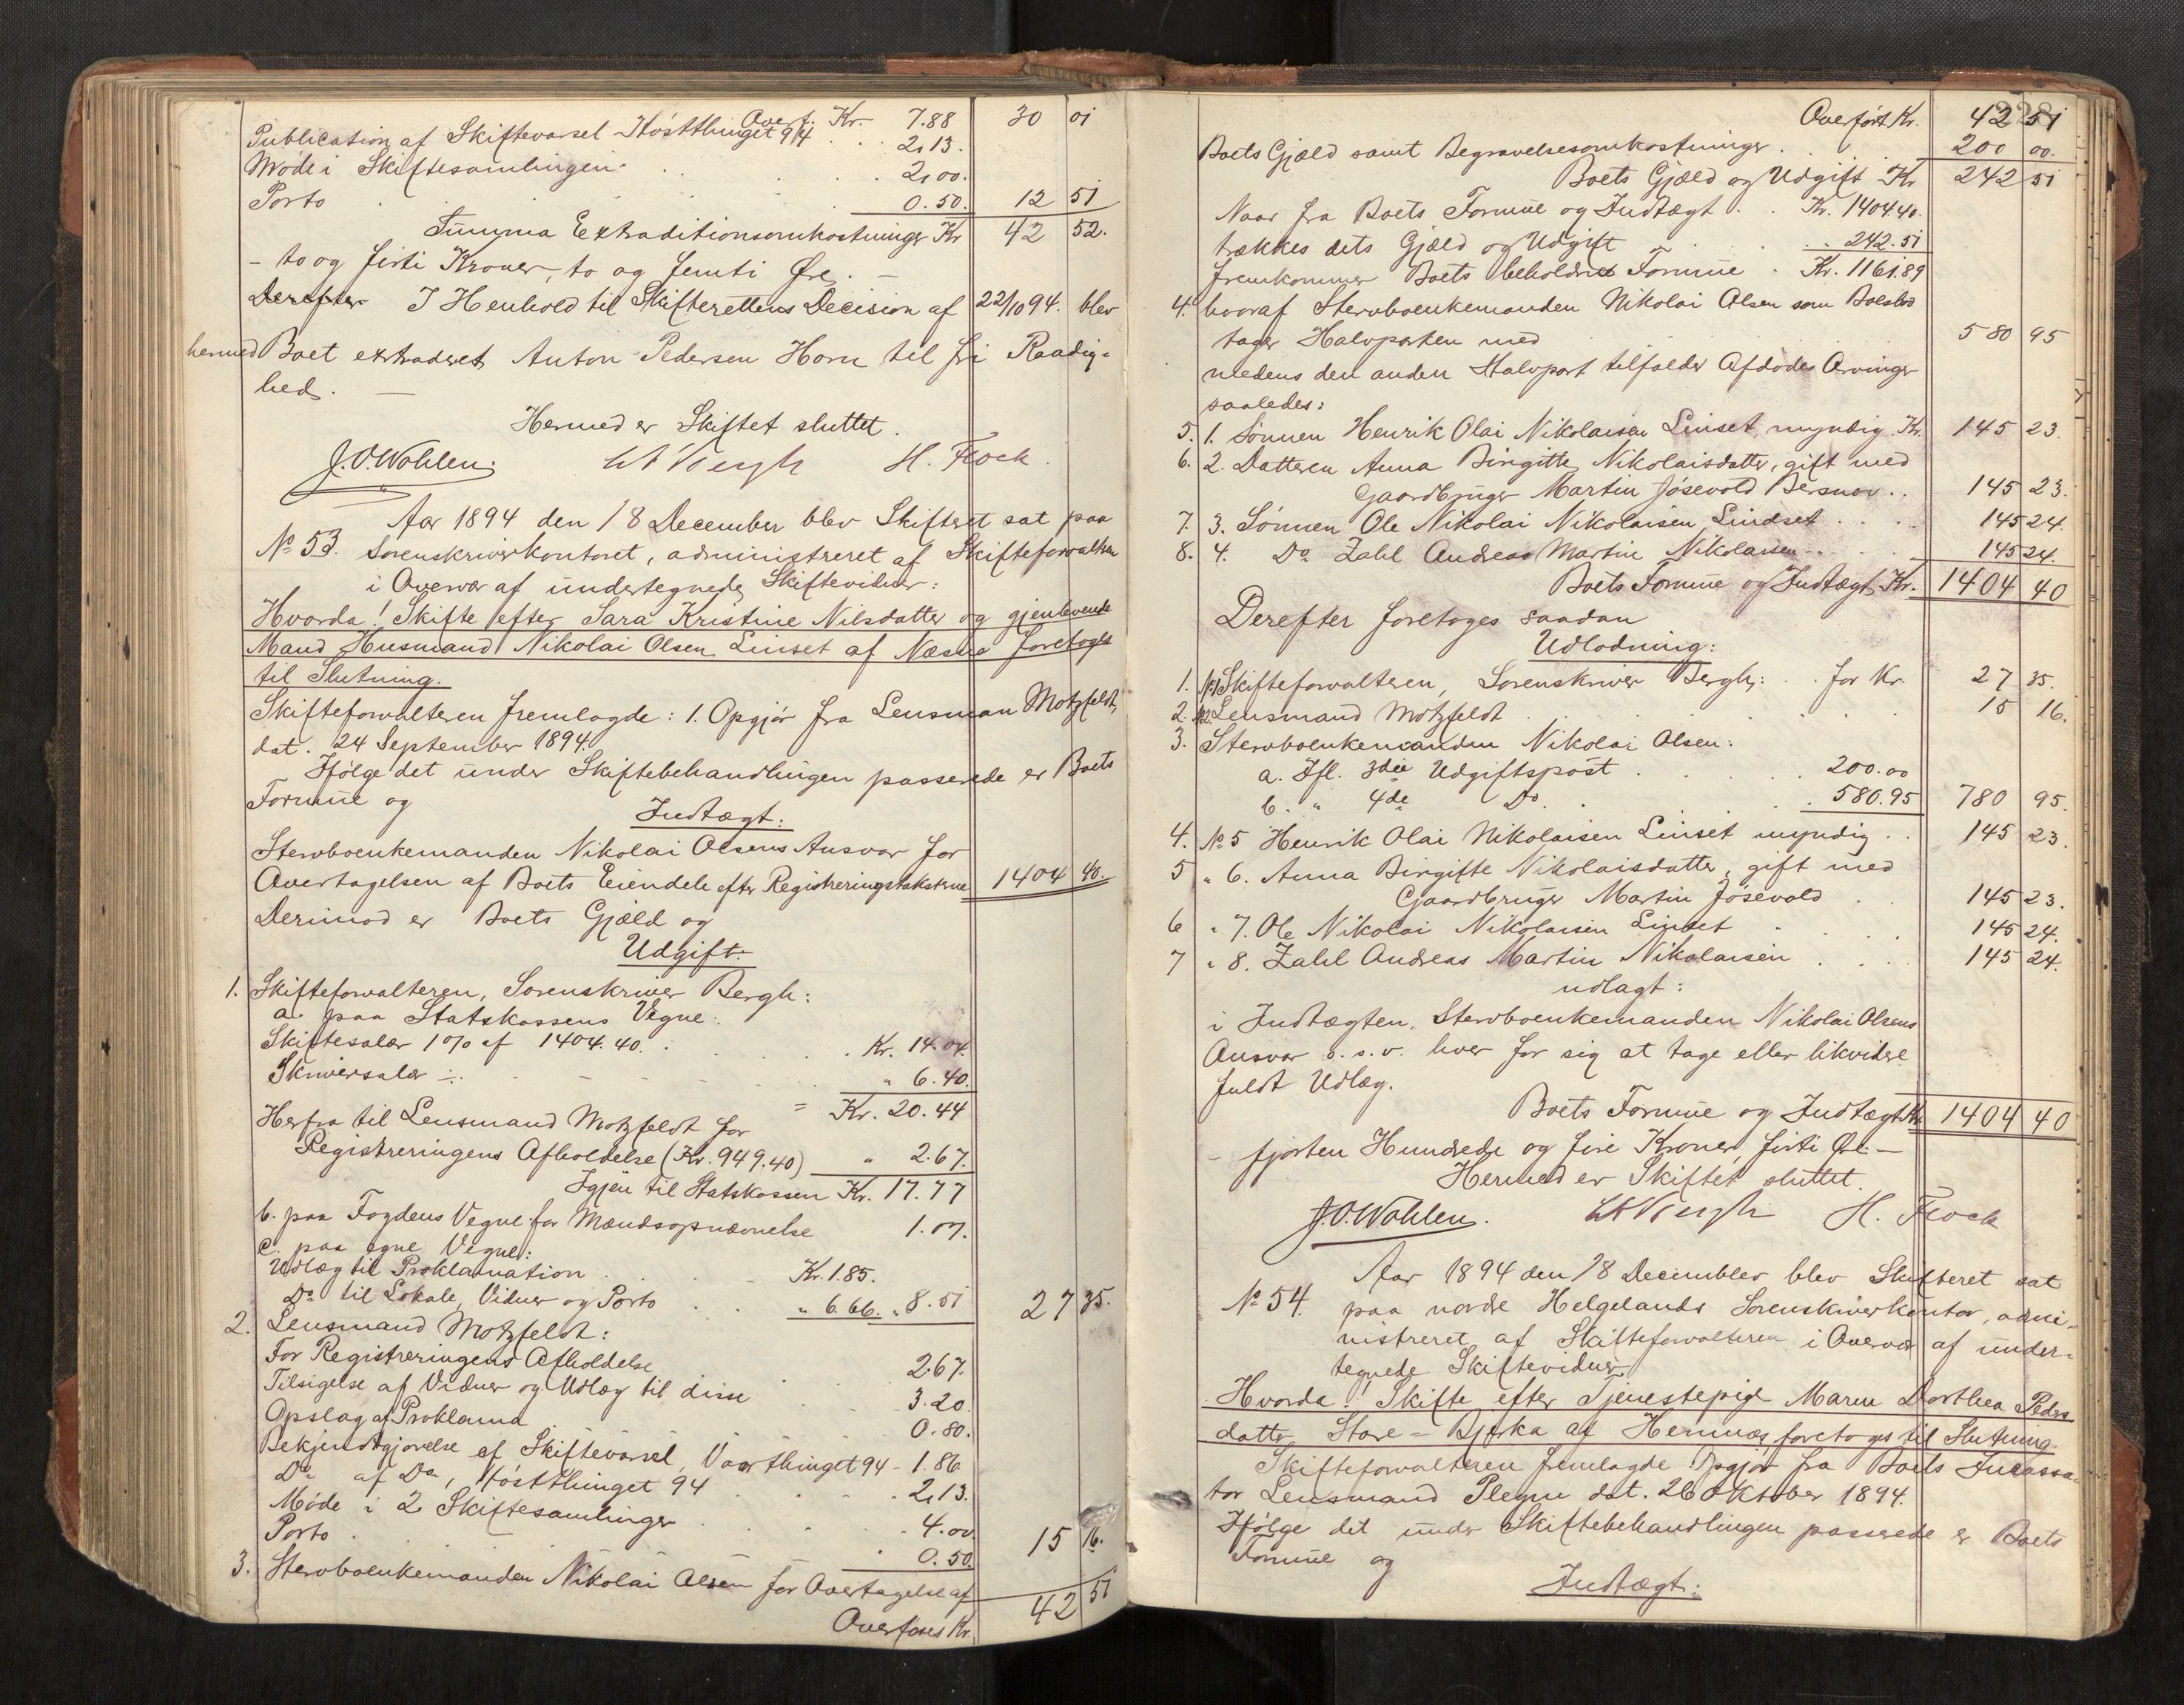 Overf. Kr. 7.88 30 01
Publication af Skiftevarsel Høstthinget 94 . . 2,13.
Møde i Skiftesamlingen . . . 2,00.
Porto . . 0.50. 12 51
Summa Extraditionsomkostninger Kr 42 52.
- to og firti Kroner, to og femti Øre. -
Derefter I Henhold til Skifterettens Decision af 22/10 94. blev
hermed Boet extraderet Anton Pedersen Horn til fri Raadig-
hed. -
Hermed er Skiftet sluttet.
J.O. Wohlen. H. Flock.
Aar 1894 den 18 December blev Skifteret sat paa
No 53. Sorenskriverkontoret, administreret af Skifteforvalteren
i Overvær af undertegnede Skiftevidner:
Hvorda! Skifte efter Sara Kristine Nilsdatter og gjenlevende
Mand Husmand Nikolai Olsen Linset af Næsna foretoges
til Slutning.
Skifteforvalteren fremlagde: 1. Opgjør fra Lensman Motzfeldt,
dat. 24 September 1894.
Ifølge det under Skiftebehandlingen passerede er Boets
Formue og
Indtægt:
Stervboenkemanden Nikolai Olsens Ansvar for
Overtagelsen af Boets Eiendele efter Registreringstaksterne 1404 40.
Derimod er Boets Gjæld og
Udgift:
1. Skifteforvalteren, Sorenskriver Bergh:
a. paa Statskassens Vegne:
Skiftesalær 1% af 1404.40. . . . Kr. 14.04.
Skriversalær -:- . . . " 6.40.
= Kr. 20.44
Herfra til Lensmand Motzfeldt for
Registreringens Afholdelse (Kr. 949.40) " 2.67.
Igjen til Statskassen Kr. 17.77
b. paa Fogdens Vegne for Mændsopnævnelse 1.07.
c. paa egne Vegne:
Udlæg til Proklamation . . . Kr. 1.85.
Do til Lokale, Vidner og Porto . . " 6.66. " 8.51 27 35.
2. Lensmand Motzfeldt:
For Registreringens Afholdelse . . 2.67.
Tilsigelse af Vidner og Udlæg til disse . . 3.20.
Opslag af Proklama . . . 0.80.
Bekjendtgjørelse af Skiftevarsel, Vaarthinget 94 - 1.86
Do af Do, Høstthinget 94 . . . 2,13.
Møde i 2 Skiftesamlinger . . . 4.00
Porto . . . 0.50. 15 16.
3. Stervboenkemanden Nikolai Olsen for Overtagelse af
Overføres Kr. 42 51
Overført Kr. 42 51
Boets Gjæld samt Begravelsesomkostninger . 200 00.
Boets Gjæld og Udgift Kr 242 51
Naar fra Boets Formue og Indtægt . . Kr. 1404.40.
trækkes dets Gjæld og Udgift . . . 242.51
fremkommer Boets beholdne Formue . Kr. 1161.89
4. hvoraf Stervboenkemanden Nikolai Olsen som Boeslod
tager Halvparten med 580 95
medens den anden Halvpart tilfalder Afdødes Arvinger
saaledes:
5. 1. Sønnen Henrik Olai Nikolaisen Linset, myndig. Kr. 145 23.
6. 2. Datteren Anna Birgitte Nikolaisdatter, gift med
Gaardbruger Martin Jøsevold . . 145 23.
7. 3. Sønnen Ole Nikolai Nikolaisen Lindset . . . 145 24.
8. 4. Do Zahl Andreas Martin Nikolaisen . . . 145 24.
Boets Formue og Indtægt Kr. 1404 40
Derefter foretoges saadan
Udlodning:
1. No 1 Skifteforvalteren, Sorenskriver Bergh: . . for Kr. 27 35.
2. No 2. Lensmand Motzfeldt . . . 15 16.
3. Stervboenkemanden Nikolai Olsen:
a. Ifl. 3die Udgiftspost . . . 200.00
b. " 4de Do. . . . 580.95 780 95.
4. No 5 Henrik Olai Nikolaisen Linset myndig . . 145 23.
5 " 6. Anna Birgitte Nikolaisdatter, gift med
Gaardbruger Martin Jøsevold . . 145 23.
6 " 7. Ole Nikolai Nikolaisen Linset . . . 145 24.
7 " 8. Zahl Andreas Martin Nikolaisen . . . 145 24.
udlagt:
i Indtægten, Stervboenkemanden Nikolai Olsens
Ansvar o.s.v. hver for sig at tage eller likvidere
fuldt Udlæg.
Boets Formue og Indtægt Kr. 1404 40
- fjorten Hundrede og fire Kroner, firti Øre. -
Hermed er Skiftet sluttet.
J.O. Wohlen. H. Flock
Aar 1894 den 18 December blev Skifteret sat
No 54. paa nordre Helgelands Sorenskriverkontor, admi-
nistreret af Skifteforvalteren i Overvær af under-
tegnede Skiftevidner.
Hvorda! Skifte efter Tjenestepige Maren Dorthea Peders
datter Store-Bjerka af Hemnæs foretoges til Slutning.
Skifteforvalteren fremlagde Opgjør fra Boets Incassa-
tor Lensmand Plegm dat. 26 Oktober 1894.
Ifølge det under Skiftebehandlingen passerede er Boets
Formue og
Indtægt: